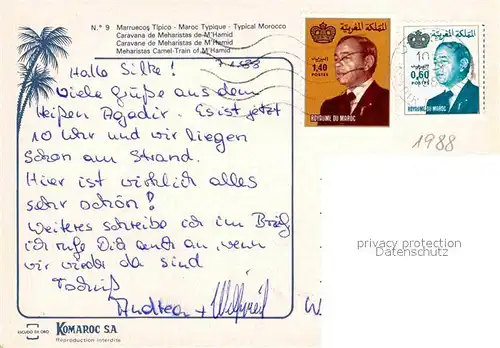 N.° 9 Marruecos Típico - Maroc Typique - Typical Morocco
Caravana de Meharistas de M'Hamid
Caravane de Meharistas de M'Hamid
Meharistas Camel-Train of M'Hamid
Hallo Silke!
Viele Grüße aus dem
heißen Agadir. Es ist jetzt
10 Uhr und wir liegen
schon am Strand.
Hier ist wirklich alles
sehr schön!
Weiteres schreibe ich im Brief
ich rufe Dich auch an, wenn
wir wieder da sind
Andrea + Wilfried
المملكة المغربية
1,40
POSTES
ROYAUME DU MAROC
المملكة المغربية
0,60
POSTES
ROYAUME DU MAROC
1988
privacy protection
Datenschutz
ESCUDO DE ORO
KOMAROC S.A.
Reproduction interdite